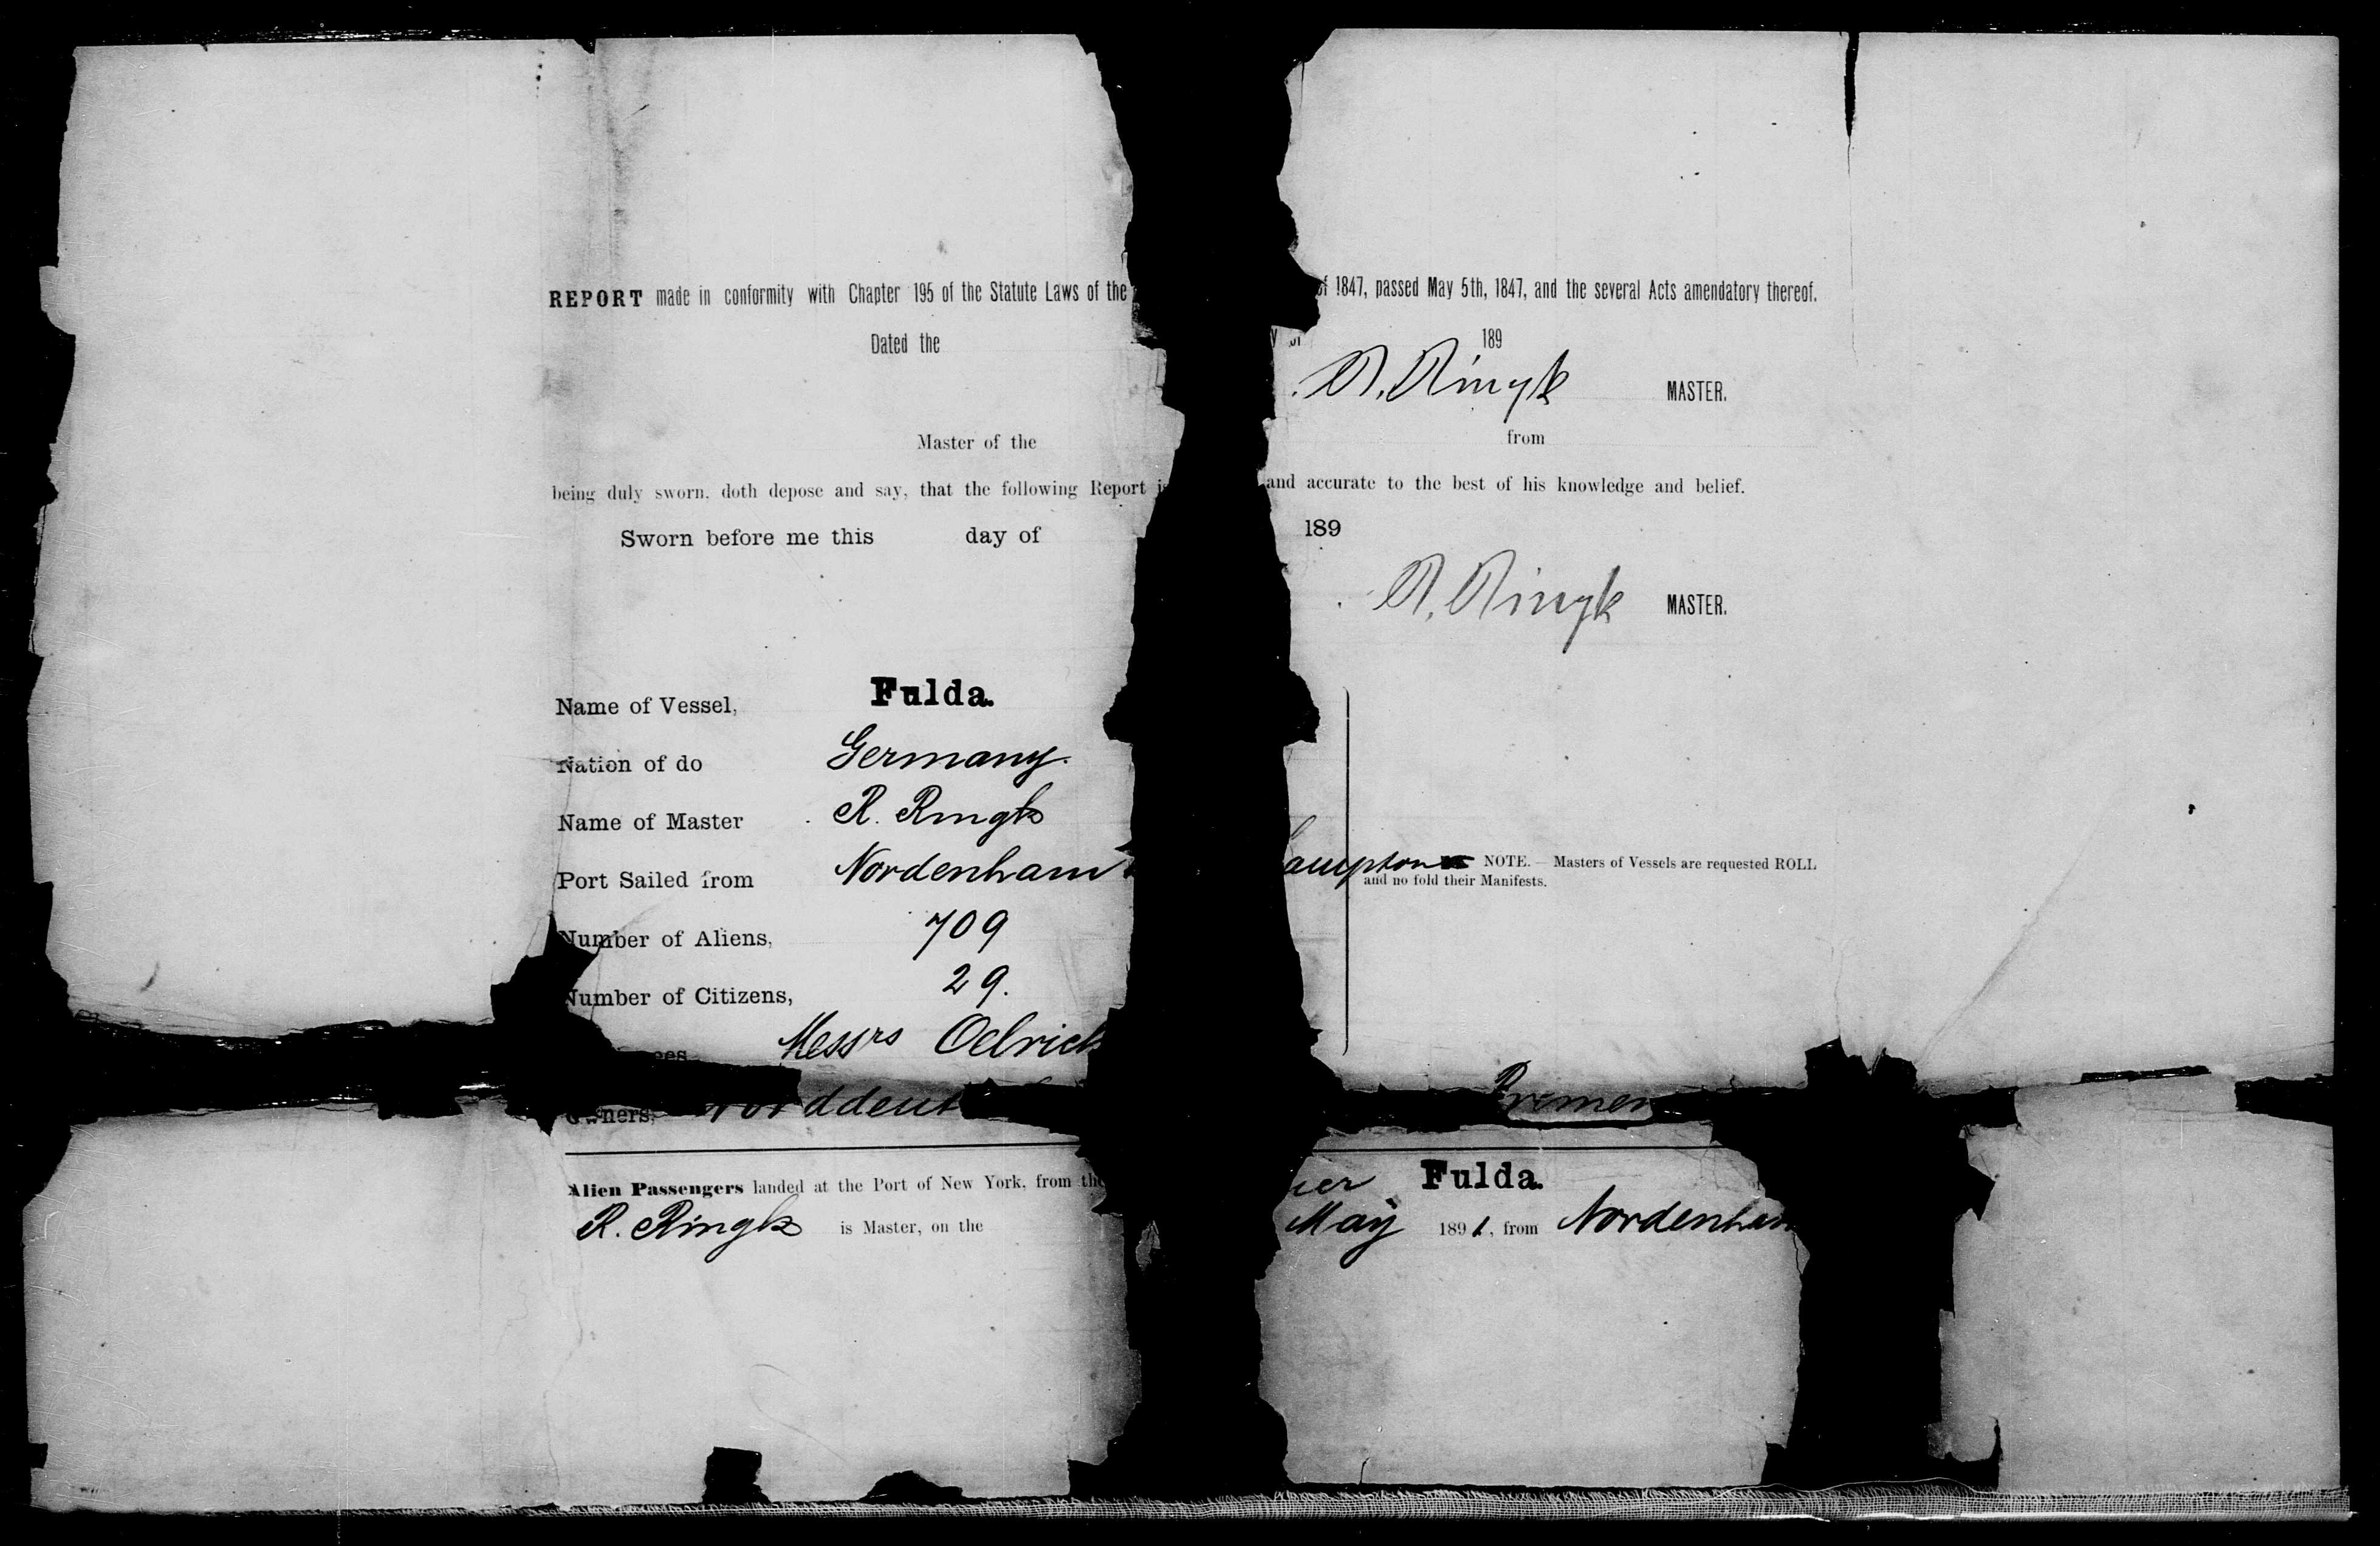 REPORT made in conformity with Chapter 195 of the Statute Laws of the of 1847, passed May 5th, 1847, and the several Acts amendatory thereof.
Dated the 189
R. Ringk MASTER.
Master of the from
being duly sworn, doth depose and say, that the following Report is and accurate to the best of his knowledge and belief.
Sworn before me this day of 189
R. Ringk MASTER.
Name of Vessel, Fulda.
Nation of do Germany.
Name of Master R. Ringk
Port Sailed from Nordenham ampton NOTE. — Masters of Vessels are requested ROLL
and no fold their Manifests.
Number of Aliens, 709
Number of Citizens, 29.
ees Messrs Oelrich
Owners, Norddeut Bremen
Alien Passengers landed at the Port of New York, from the Fulda.
R. Ringk is Master, on the May 1891, from Nordenham